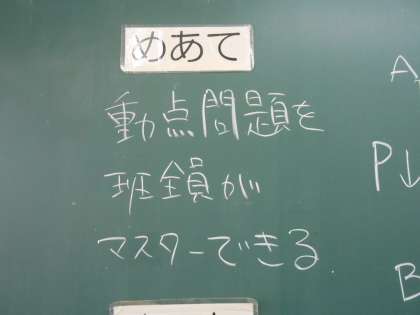 めあて
動点問題を
班全員が
マスターできる
A
P↓
B